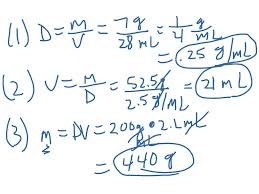 (1) D = m/V = 7g/28mL = 1/4 g/mL = .25 g/mL
(2) V = m/D = 52.5g/2.5g/mL = 21mL
(3) m = DV = 200g/mL • 2.2mL
= 440g